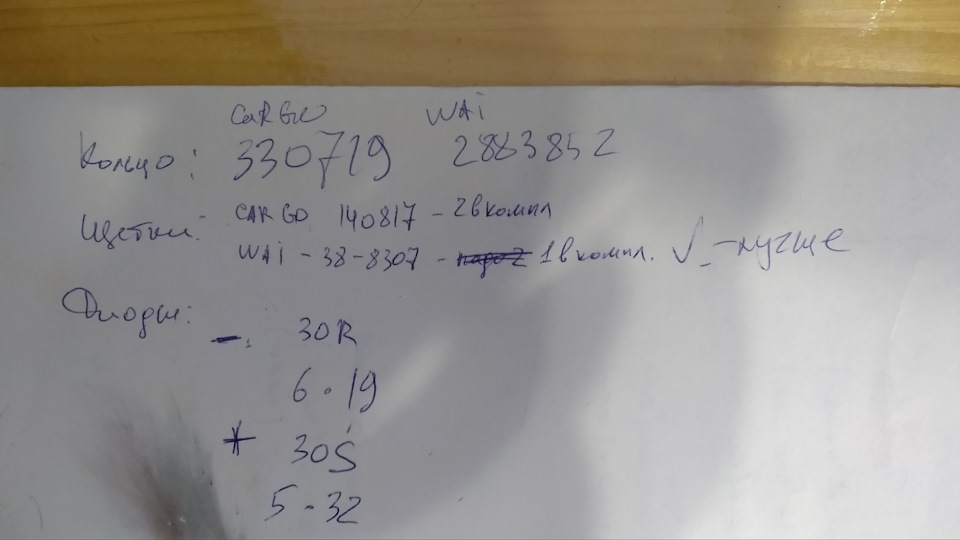 CARGO WAi
Кольцо: 330719 2883852
Щетки: CARGO 140817 - 2 в компл
WAi - 38-8307 - надо 2 1 в компл. √ - лучше
Диоды:
-: 30R
6 · 19
+ 30S
5 - 32